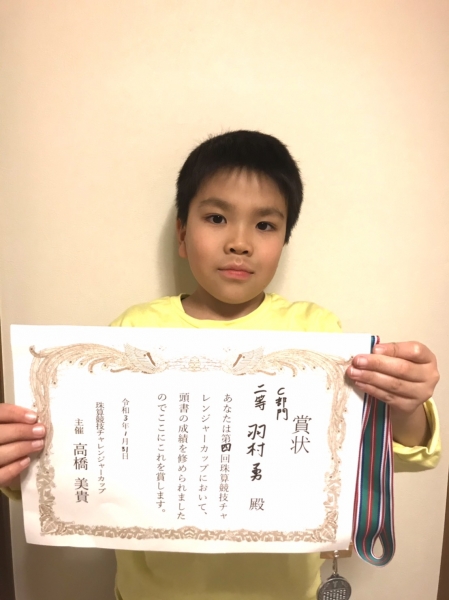 賞状
C部門
二等 羽村勇 殿
あなたは第四回珠算競技チャ
レンジャーカップにおいて、
頭書の成績を修められました
のでここにこれを賞します。
令和3年1月31日
珠算競技チャレンジャーカップ
主催 高橋 美貴